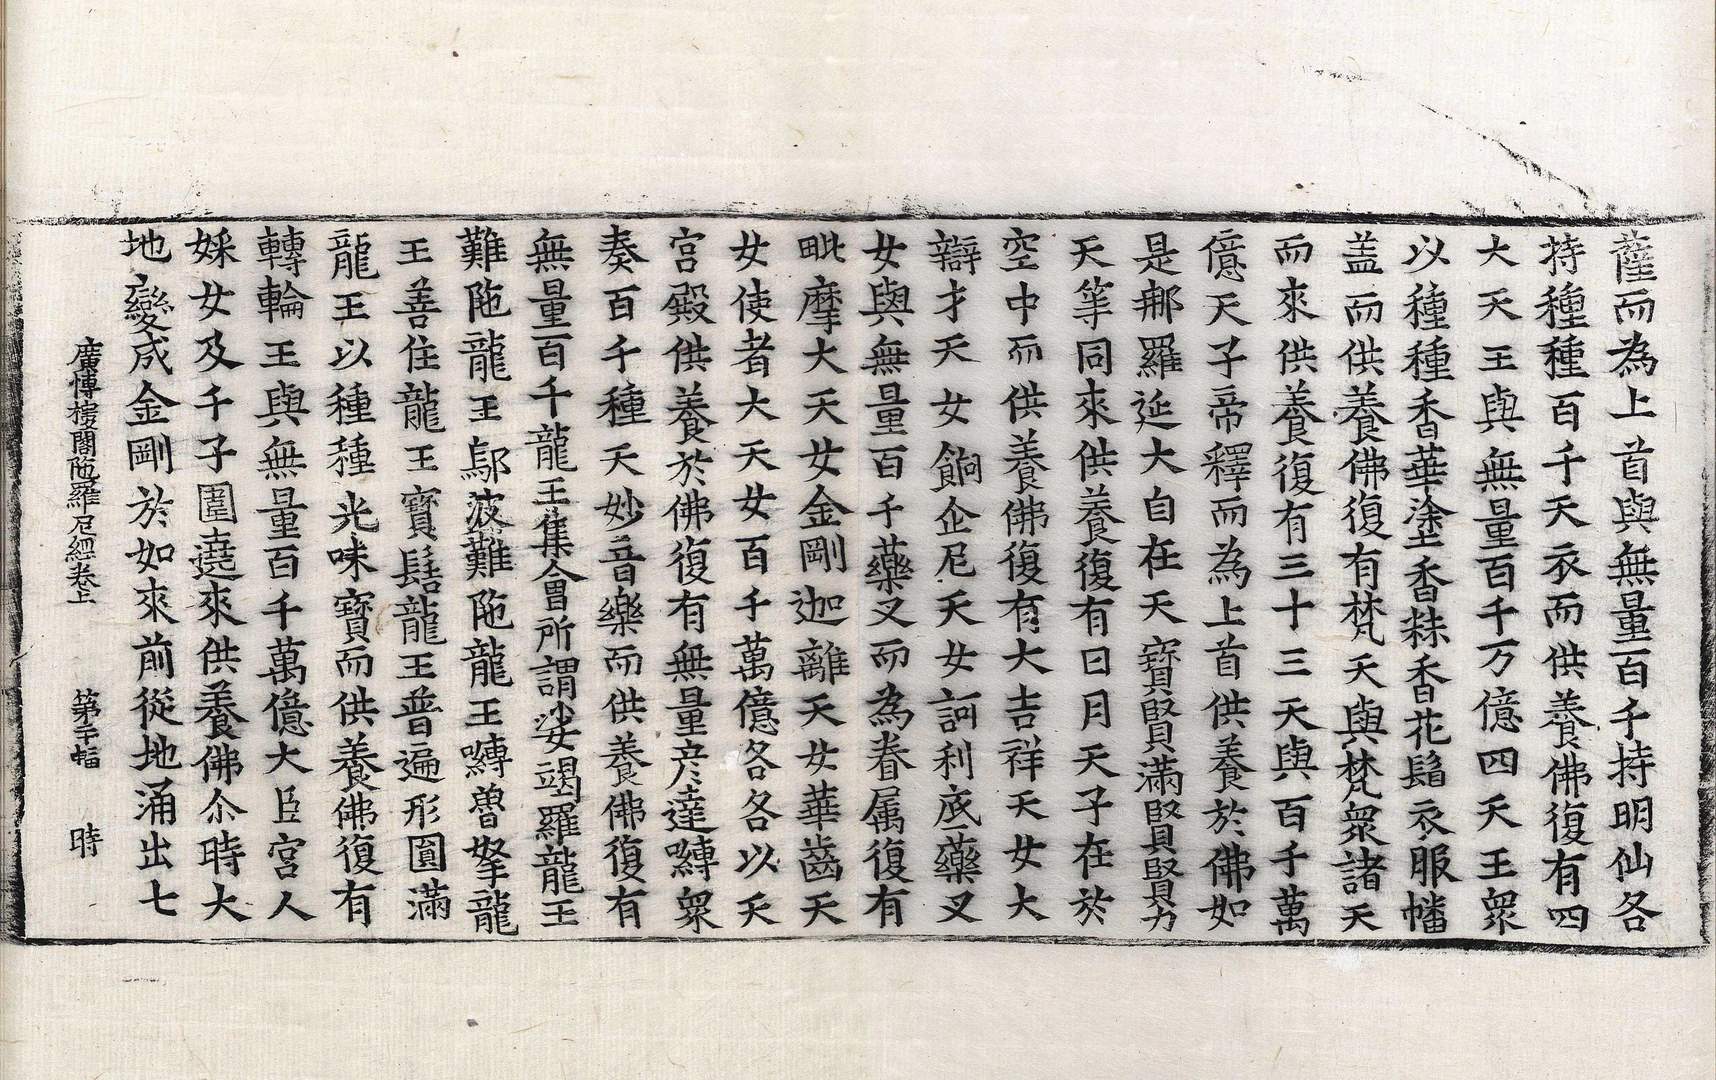 薩而為上首與無量百千持明仙各
持種種百千天衣而供養佛復有四
大天王與無量百千万億四天王衆
以種種香華塗香粖香花鬘衣服幡
盖而供養佛復有梵天與梵衆諸天
而來供養復有三十三天與百千萬
億天子帝釋而為上首供養於佛如
是郍羅延大自在天寶賢滿賢賢力
天等同來供養復有日月天子在於
空中而供養佛復有大吉祥天女大
辯才天女餉企尼天女訶利底藥叉
女與無量百千藥叉而為眷属復有
毗摩大天女金剛迦離天女華齒天
女使者大天女百千萬億各各以天
宮殿供養於佛復有無量彦達嚩衆
奏百千種天妙音樂而供養佛復有
無量百千龍王集會所謂娑竭羅龍王
難陁龍王鄔波難陁龍王嚩魯拏龍
王善住龍王寶髻龍王普遍形圎滿
龍王以種種光味寶而供養佛復有
轉輪王與無量百千萬億大臣宮人
婇女及千子圍遶來供養佛尒時大
地變成金剛於如來前從地涌出七
廣博樓閣陁羅尼經卷上 第二幅 時